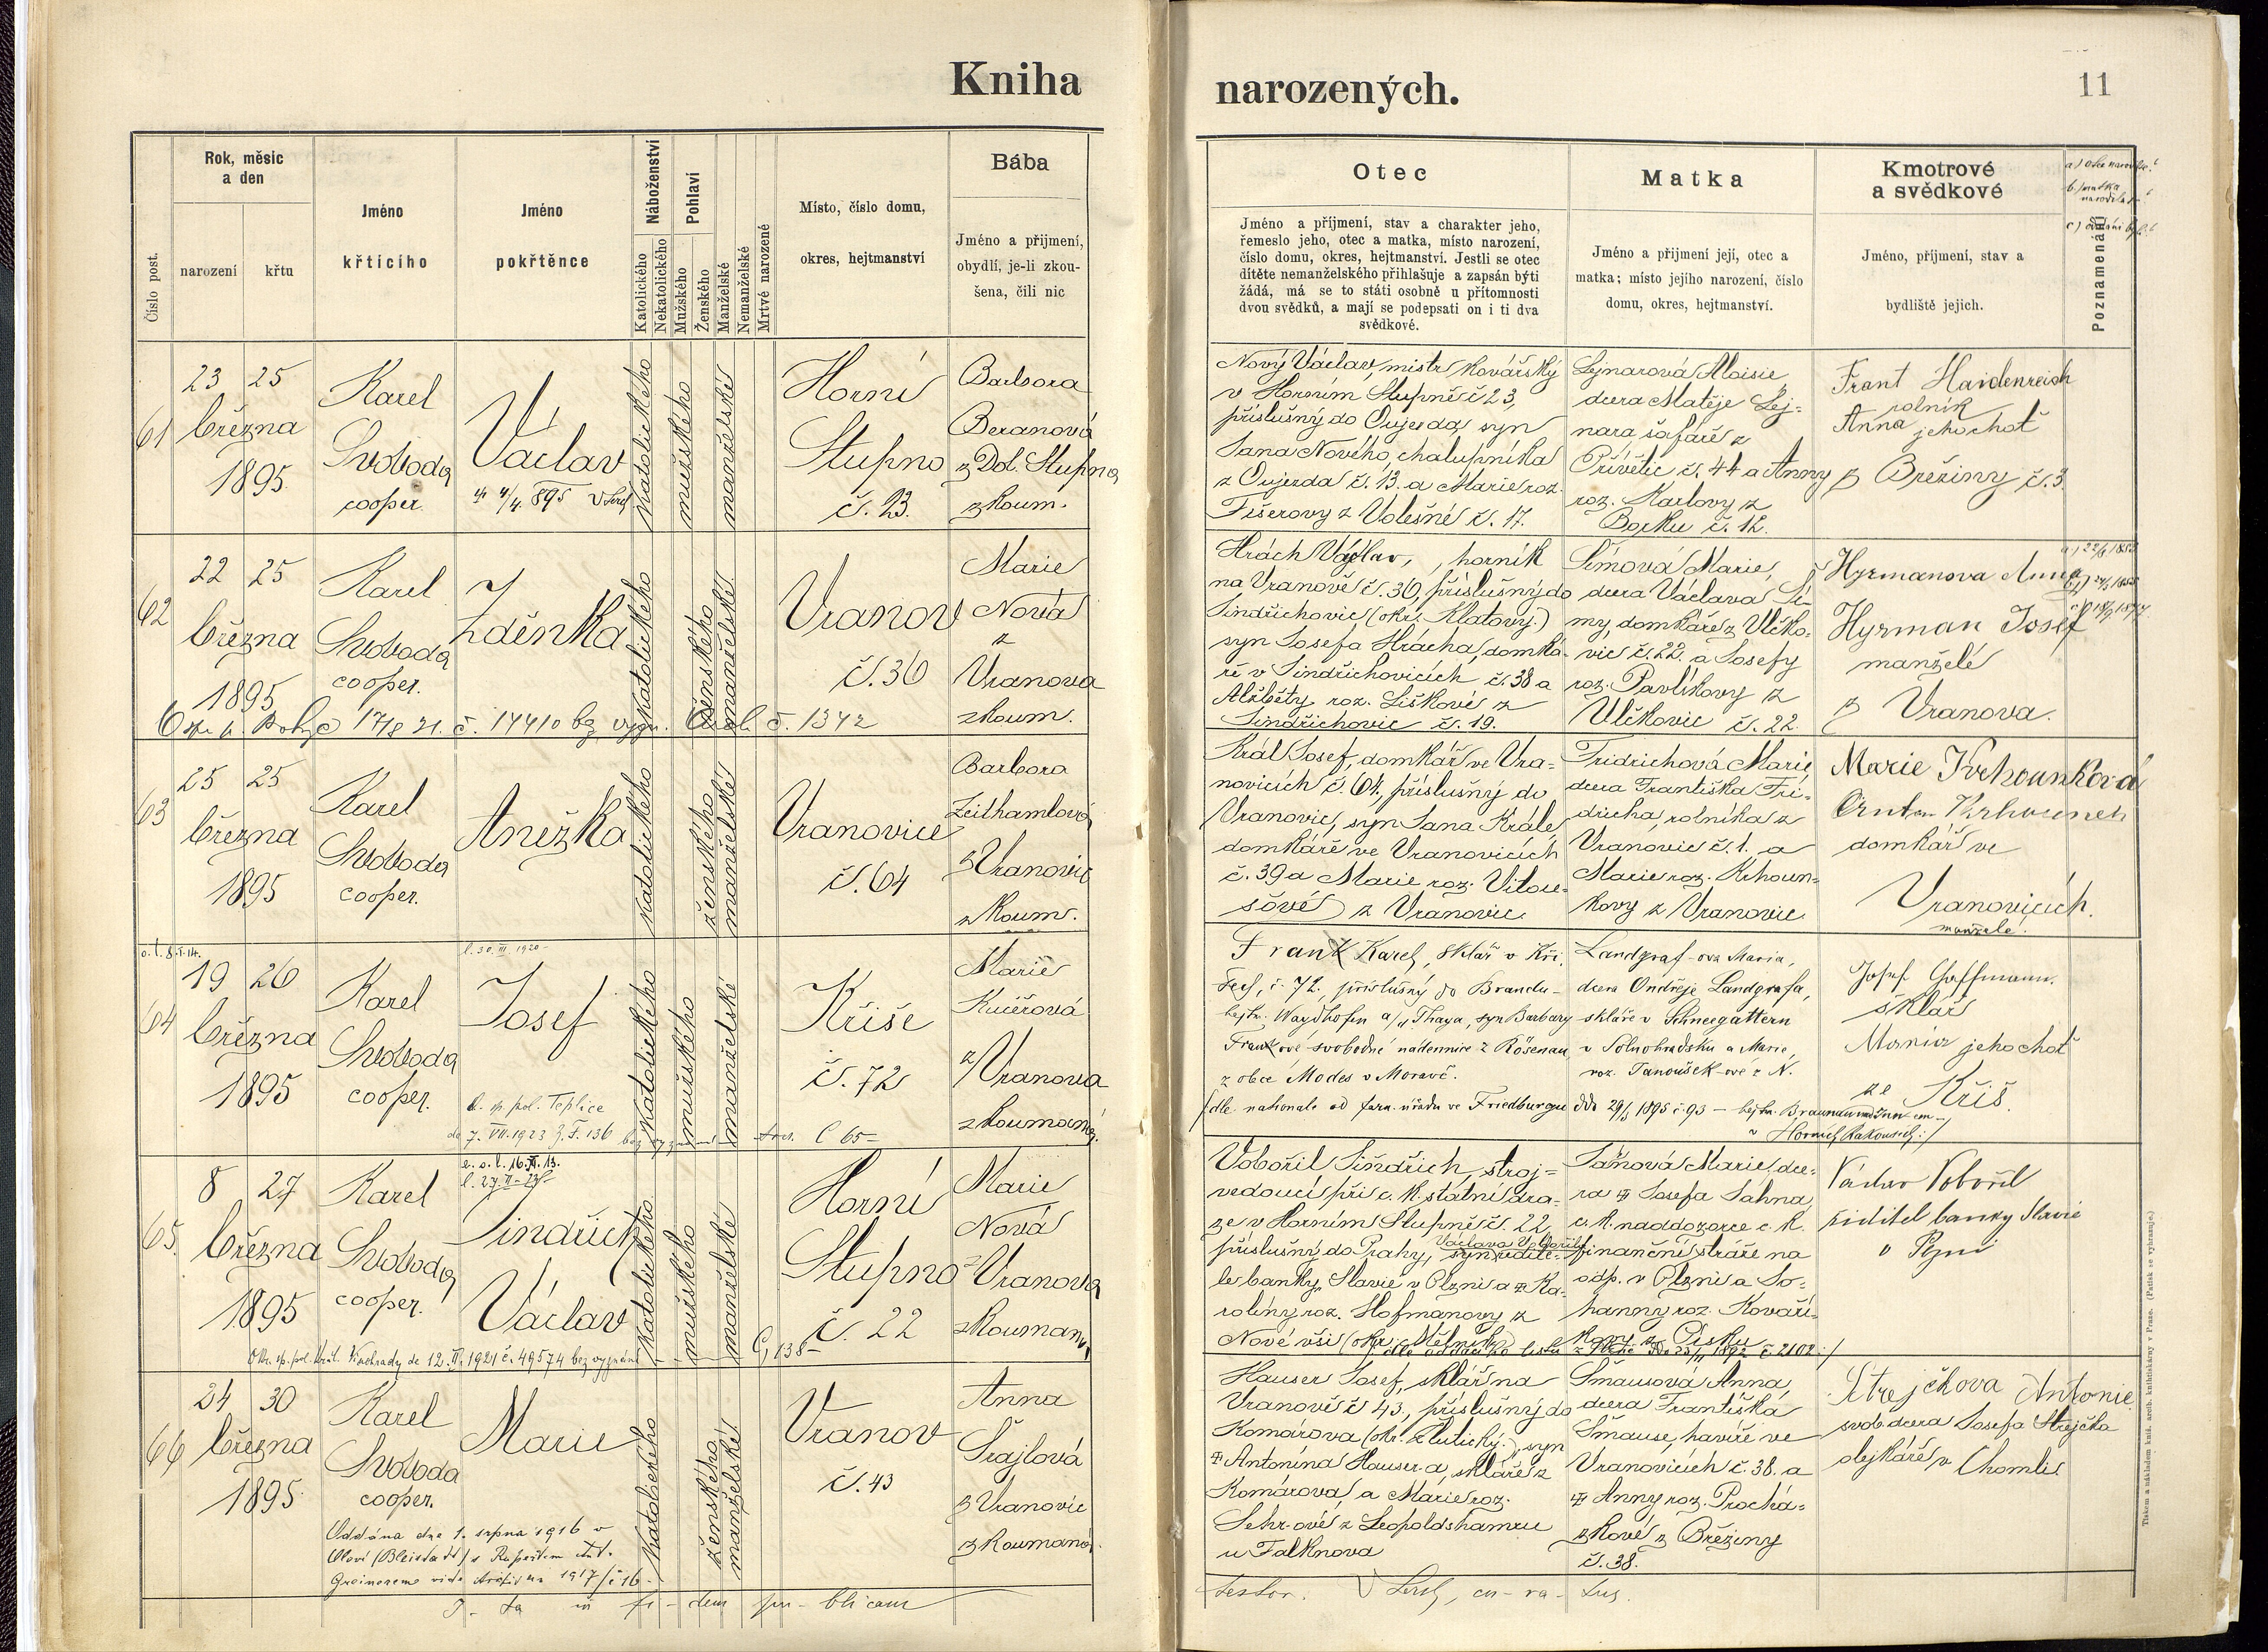 Kniha
narozených.
11
Číslo post.
Rok, měsíc
a den
narození
křtu
Jméno
křtícího
Jméno
pokřtěnce
Náboženství
Katolického
Nekatolického
Pohlaví
Mužského
Ženského
Manželské
Nemanželské
Mrtvé narozené
Místo, číslo domu,
okres, hejtmanství
Bába
Jméno a přijmení,
obydlí, je-li zkou-
šena, čili nic
Otec
Jméno a příjmení, stav a charakter jeho,
řemeslo jeho, otec a matka, místo narození,
číslo domu, okres, hejtmanství. Jestli se otec
dítěte nemanželského přihlašuje a zapsán býti
žádá, má se to státi osobně u přítomnosti
dvou svědků, a mají se podepsati on i ti dva
svědkové.
Matka
Jméno a přijmení její, otec a
matka; místo jejího narození, číslo
domu, okres, hejtmanství.
Kmotrové
a svědkové
Jméno, příjmení, stav a
bydliště jejich.
Poznamenání
61
23 25
března
1895
Karel
Svoboda
cooper.
Václav
katolického
mužského
manželské
Horní
Stupno
č. 23.
Barbora
Beranová
z Dol. Stupna
zkoum.
Nový Václav, mistr kovářský
v Horním Stupně č 23,
příslušný do Oujezda, syn
Jana Nového, chalupníka
z Oujezda č. 13. a Marie roz.
Fišerovy z Volešné č. 17.
Lejnarová Aloisie
dcera Matěje Lej-
nara, šafáře z
Přívětic č. 44 a Anny
roz. Karlovy z
Borku č. 12.
Frant Haidenreich
rolník
Anna jeho choť
z Březiny č. 3.
62
22 25
března
1895
Karel
Svoboda
cooper.
Zděnka
katolického
ženského
manželské
Vranov
č. 36
Marie
Nová
z
Vranova
zkoum.
č. 1342
Hrách Václav, horník
na Vranově č. 36, příslušný do
Jindřichovic (okr. Klatovy.)
syn Josefa Hrácha, domká-
ře v Jindřichovicích č. 38 a
Alžběty roz. Liškové z
Jindřichovic č. 19.
Šímová Marie,
dcera Václava Ší-
my, domkáře z Vlčko-
vic č. 22. a Josefy
roz. Pavlíkovy z
Vlčkovic č. 22.
Hyrmanova Anna
Hyrman Josef
manželé
z Vranova.
63
25 25
března
1895
Karel
Svoboda
cooper.
Anežka
katolického
ženského
manželské
Vranovice
č. 64
Barbora
Zeithamlová
z Vranovic
zkoum.
Král Josef, domkář ve Vra-
novicích č. 64, příslušný do
Vranovic, syn Jana Krále,
domkáře ve Vranovicích
č. 39 a Marie roz. Vitou-
šové z Vranovic.
Fridrichová Marie,
dcera Františka Fri-
dricha, rolníka z
Vranovic č. 1. a
Marie roz. Krhoun-
kovy z Vranovic
Marie Krhounková
domkář ve
Vranovicích.
manželé.
64
19 26
března
1895
Karel
Svoboda
cooper.
l. 30. III. 1920
Josef
katolického
mužského
manželské
Kříše
č. 72
Marie
Kučerová
z Vranova
zkoumaná.
Frank Karel, sklář v Kří-
hejtm. Waydhofen a/d Thaya, syn Barbary
Frankové svobodné nádennice z Rösenau
z obce Modes v Moravě.
Landgraf-ova Maria,
dcera Ondřeje Landgrafa,
skláře v Schneegattern
v Solnohradsku a Marie,
roz. Janoušek-ové z N.
Josef Hoffmann.
sklář
Maria jeho choť
ze Kříš.
65.
8 27
března
1895
Karel
Svoboda
cooper.
Jindřich
Václav
katolického
mužského
manželské
Horní
Stupno
č. 22
Marie
Nová
z Vranova
zkoumaná
Vobořil Jindřich, stroj-
vedoucí při c. k. státní dra-
ze v Horním Stupně č. 22,
příslušný do Prahy, syn ředite-
Václava Vobořila
le banky „Slavie“ v Plzni a Ka-
roliny roz. Hofmanovy z
Nové vsi (okr. Mělník)
Jahnová Marie, dce-
ra Josefa Jahna,
c. k. naddozorce c. k.
finanční stráže na
odp. v Plzni a Jo-
hanny roz. Kovaří-
kovy z Písku
Václav Vobořil
řiditel banky Slavie
v Plzni
66
24 30
března
1895
Karel
Svoboda
cooper.
Marie
katolického
ženského
manželské
Vranov
č. 43
Anna
Šrajlová
z Vranovic
zkoumaná.
Oddána dne 1. srpna 1916 v
Hauser Josef, sklář na
Vranově č 43., příslušný do
Komárova (okr. Žlutický.), syn
Antonína Hauser-a, skláře z
Komárova a Marie roz.
Sehr-ové z Leopoldshamru
u Falknova
Šmausová Anna
dcera Františka
Šmause, havíře ve
Vranovicích č. 38. a
Anny roz. Prochá-
zkové z Březiny
č. 38.
Strejčkova Antonie
svob. dcera Josefa Strejčka
olejkáře v Chomli
I-ta in fi-dem pu-blicam
testor. cu-ra-tus.